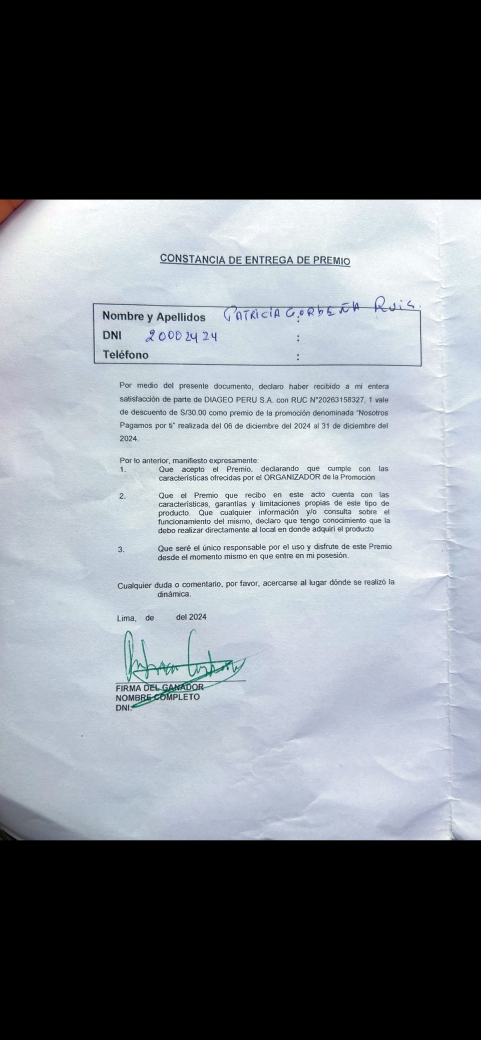 CONSTANCIA DE ENTREGA DE PREMIO
Nombre y Apellidos : PATRICIA CORDEÑA Ruis.
DNI 20002424 :
Teléfono :
Por medio del presente documento, declaro haber recibido a mi entera
satisfacción de parte de DIAGEO PERU S.A. con RUC N°20263158327, 1 vale
de descuento de S/30.00 como premio de la promoción denominada "Nosotros
Pagamos por ti" realizada del 06 de diciembre del 2024 al 31 de diciembre del
2024.
Por lo anterior, manifiesto expresamente:
1. Que acepto el Premio, declarando que cumple con las
características ofrecidas por el ORGANIZADOR de la Promoción
2. Que el Premio que recibo en este acto cuenta con las
características, garantías y limitaciones propias de este tipo de
producto. Que cualquier información y/o consulta sobre el
funcionamiento del mismo, declaro que tengo conocimiento que la
debo realizar directamente al local en donde adquirí el producto
3. Que seré el único responsable por el uso y disfrute de este Premio
desde el momento mismo en que entre en mi posesión.
Cualquier duda o comentario, por favor, acercarse al lugar dónde se realizó la
dinámica.
Lima, de del 2024
FIRMA DEL GANADOR
NOMBRE COMPLETO
DNI: